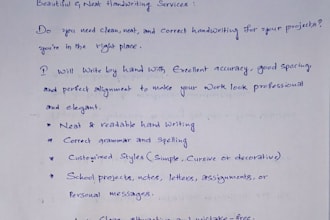 Beautiful & Neat Handwriting Services:
Do you need clean, neat, and correct handwriting for your projects?
you're in the right place.
I will Write by hand With Excellent accuracy, good spacing,
and perfect alignment to make your work look professional
and elegant.
* Neat & readable hand writing
* Correct grammar and spelling
* Customized Styles (Simple, Cursive or decorative).
* School projects, notes, letters, assignments, or
Personal messages.